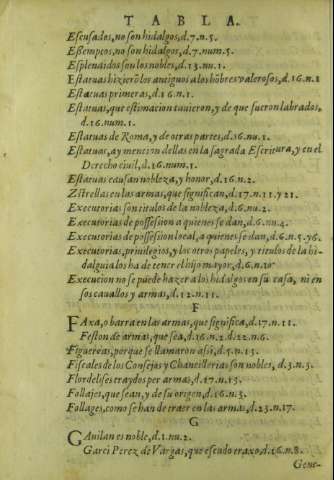 TABLA.
Escusados, no son hidalgos, d.7.n.5.
Essemptos, no son hidalgos, d.7.num.5.
Esplendidos son los nobles, d.13.nu.1.
Estatuas hizierõ los antiguos a los hõbres valerosos, d.16.n.1
Estatuas primeras, d.16.n.1.
Estatuas, que estimacion tuuieron, y de que fueron labrados,
d.16.num.1.
Estatuas de Roma, y de otras partes, d.16.nu.1.
Estatuas, ay mencion dellas en la sagrada Escritura, y en el
Derecho ciuil, d.16.num.1.
Estatuas causan nobleza, y honor, d.16.n.2.
Estrellas en las armas, que significan, d.17.n.11.y 21.
Executorias son titulos de la nobleza, d.6.nu.2.
Executorias de possession a quienes se dan, d.6.nu.4.
Executorias de possession local, a quienes se dan, d.6.n.5.y6.
Executorias, priuilegios, y los otros papeles, y titulos de la hi-
dalguia los ha de tener el hijo mayor, d.6.n.10
Execucion no se puede hazer a los hidalgos en su casa, ni en
sos cauallos y armas, d.12.n.11.
F
FAxa, o barra en las armas, que significa, d.17.n.11.
Feston de armas, que sea, d.16.n.2.d.22.n.6.
Figuereas, porque se llamaron assi, d.5.n.15.
Fiscales de los Consejos y Chancillerias son nobles, d.3.n.5.
Flordelises traydos por armas, d.17.n.15.
Follajes, que sean, y de su origen, d.16.n.5.
Follages, como se han de traer en las armas, d.23.n.17.
G
GAuilan es noble, d.1.nu.2.
Garci Perez de Vargas, que escudo traxo, d.16.n.8.
Gene-